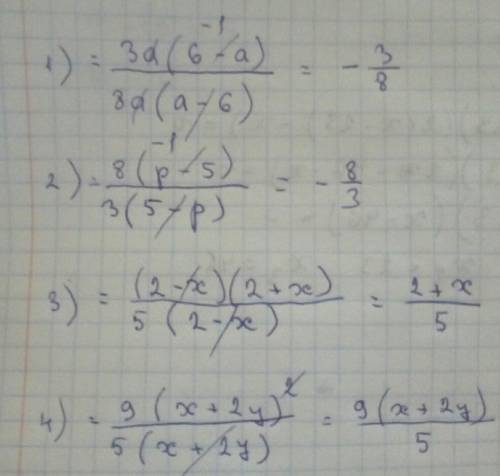 1) = 3a(6-a)/8a(a-6) = -3/8
-1
2) = 8(p-5)/3(5-p) = -8/3
-1
3) = (2-x)(2+x)/5(2-x) = 2+x/5
4) = 9(x+2y)²/5(x+2y) = 9(x+2y)/5